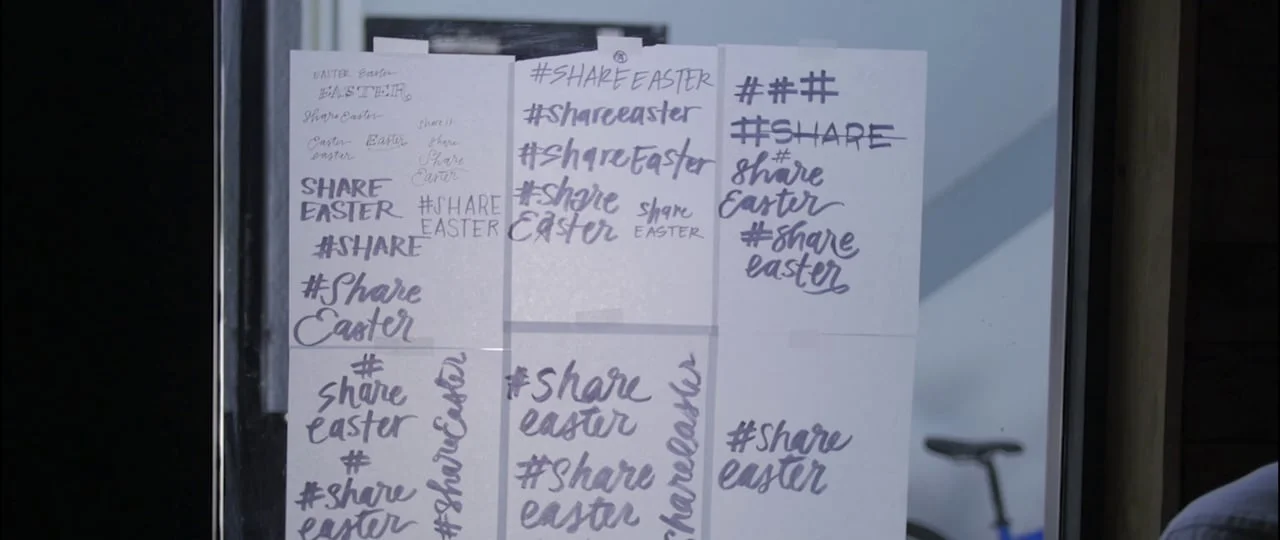 EASTER Easter
EASTER
Share Easter
share it
Easter Easter share
easter
Share
Easter
SHARE
EASTER
#SHARE
EASTER
#SHARE
#Share
Easter
#SHAREEASTER
#shareeaster
#ShareEaster
#share
Easter
share
EASTER
###
#SHARE
#
share
Easter
#share
easter
#
share
easter
#
#share
easter
#ShareEaster
#share
easter
#Share
easter
shareeaster
#share
easter